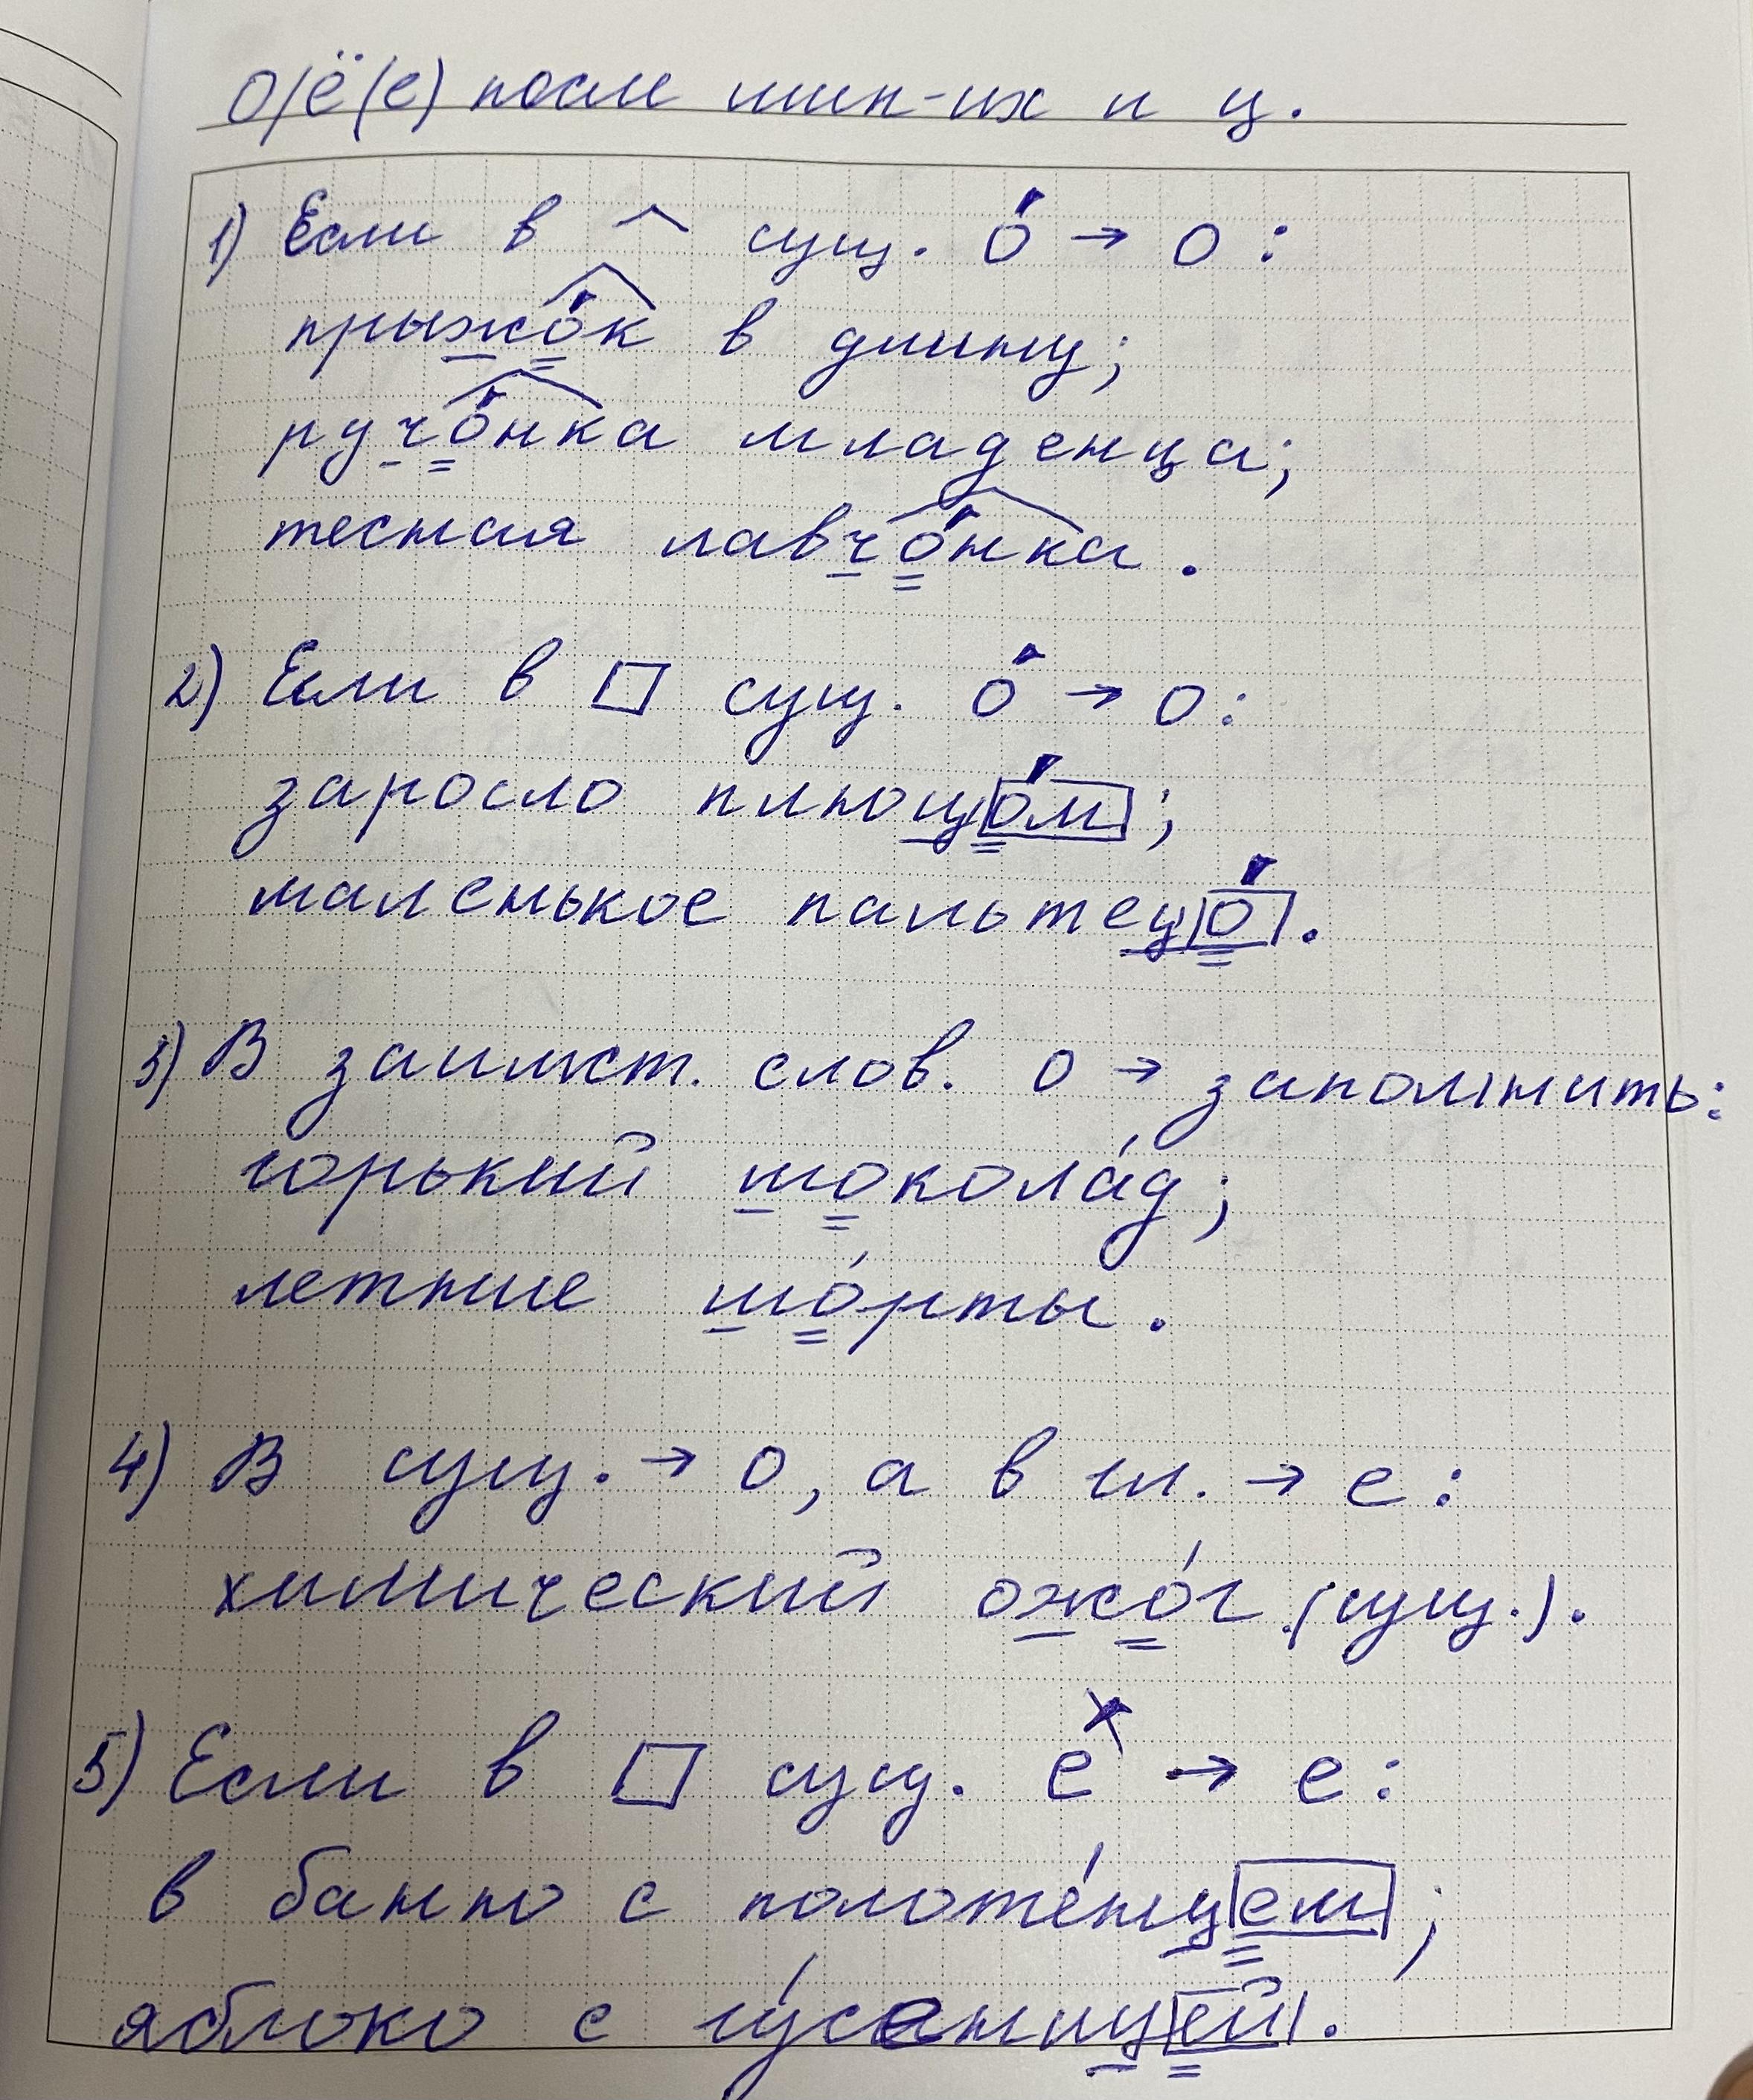 О/ё(е) после шип-их и ц.
1) Если в ^ сущ. о́ → о:
прыжо́к в длину;
ручо́нка младенца;
тесная лавчо́нка.
2) Если в □ сущ. о́ → о:
заросло плющо́м;
маленькое пальтецо́.
3) В заимст. слов. о → запомнить:
горький шокола́д;
летние шо́рты.
4) В сущ. → о, а в гл. → е:
химический ожо́г (сущ.).
5) Если в □ сущ. е → е:
в банно с полоте́нцем;
яблоко с гу́сеницей.